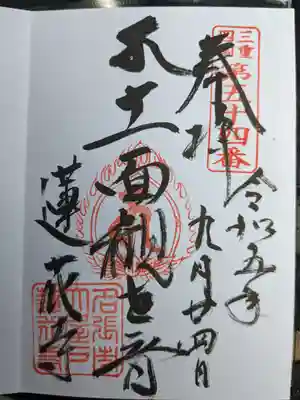 三重四国第五十四番
奉拝
令和五年
九月廿四日
十一面観世音
蓮花寺
名張市